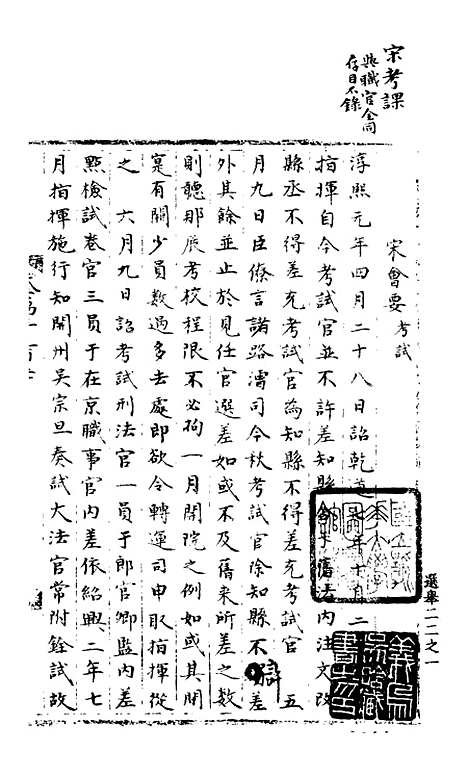 宋考課
與職官仝間
存目不錄
宋會要 考試
淳熙元年四月二十八日詔乾道七年十月二
指揮自今考試官並不許差知縣令于舊法內注文改
縣丞不得差充考試官為知縣不得差充考試官 五
月九日臣僚言諸路漕司今秋考試官除知縣不許差
外其餘並止於見任官選差如或不及舊來所差之數
則聽那展考校程限不必拘一月開院之例如或其間
寔有闕少員數過多去處即欲令轉運司申取指揮從
之 六月九日詔考試刑法官一員于郎官卿監內差
點檢試卷官三員于在京職事官內差依紹興二年七
月指揮施行知開州吳宗旦奏試大法官常附銓試故
選舉二二之一